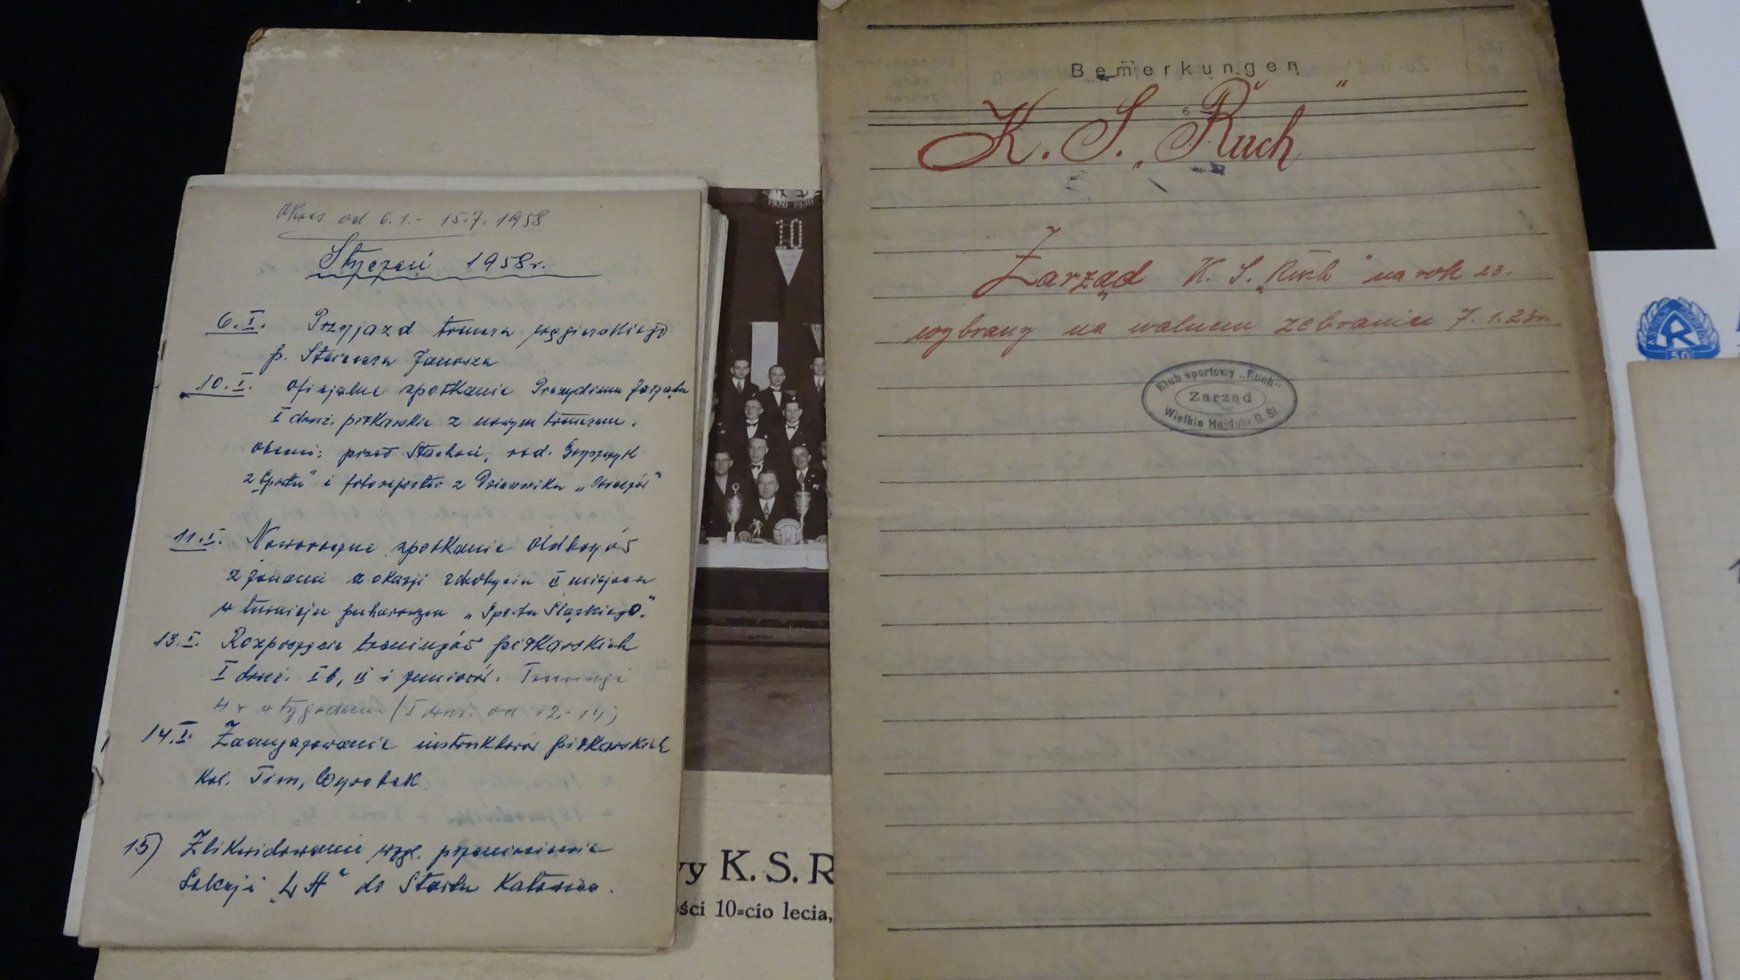 Okres od 6.1. - 15.7. 1958
Styczeń 1958r.
6.I. Przyjazd trenera węgierskiego
p. Janosza
10.I. Oficjalne spotkanie Prezydium Zarządu
I druż. piłkarskie z nowym trenerem.
obecni: red.
z "Sportu" i fotoreporter z Dziennika
11.I. Noworoczne spotkanie Oldboyów
z żonami z okazji zdobycia II miejsca
w turnieju pucharowym „Sportu Śląskiego."
13.I. Rozpoczęcie treningów piłkarskich
I druż. I b, II i juniorów. Treningi
4 x w tygodniu (I druż. od 12-14)
14.I. Zaangażowanie instruktorów piłkarskich
Kol. Tim, Wyrobek
15) Zlikwidowanie wzgl. przeniesienie
Sekcji do Startu Katowice.
1920-1930
10
wy K. S. R
ości 10=cio lecia,
Bemerkungen
K. S. „Ruch"
Zarząd K. S. „Ruch" na rok 23.
wybrany na walnem zebraniu 7.1.23r.
Klub sportowy „Ruch"
Zarząd
Wielkie Hajduki G. Sl.
R
50